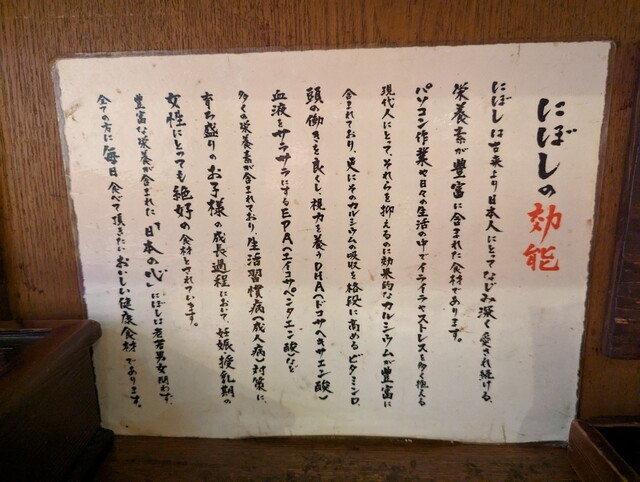 にぼしの効能
にぼしは古来より日本人にとってなじみ深く愛され続ける、
栄養素が豊富に含まれた食材であります。
パソコン作業や日々の生活の中でイライラやストレスを多く抱える
現代人にとって、それらを抑えるのに効果的なカルシウムが豊富に
含まれており、更にそのカルシウムの吸収を格段に高めるビタミンD、
頭の働きを良くし、視力を養うDHA(ドコサヘキサエン酸)
血液をサラサラにするEPA(エイコサペンタエン酸)など
多くの栄養素が含まれており、生活習慣病(成人病)対策に、
育ち盛りのお子様の成長過程において、妊娠・授乳期の
女性にとっても絶好の食材とされています。
豊富な栄養が含まれた「日本の心」にぼしは老若男女問わず、
全ての方に毎日食べて頂きたいおいしい健康食材であります。